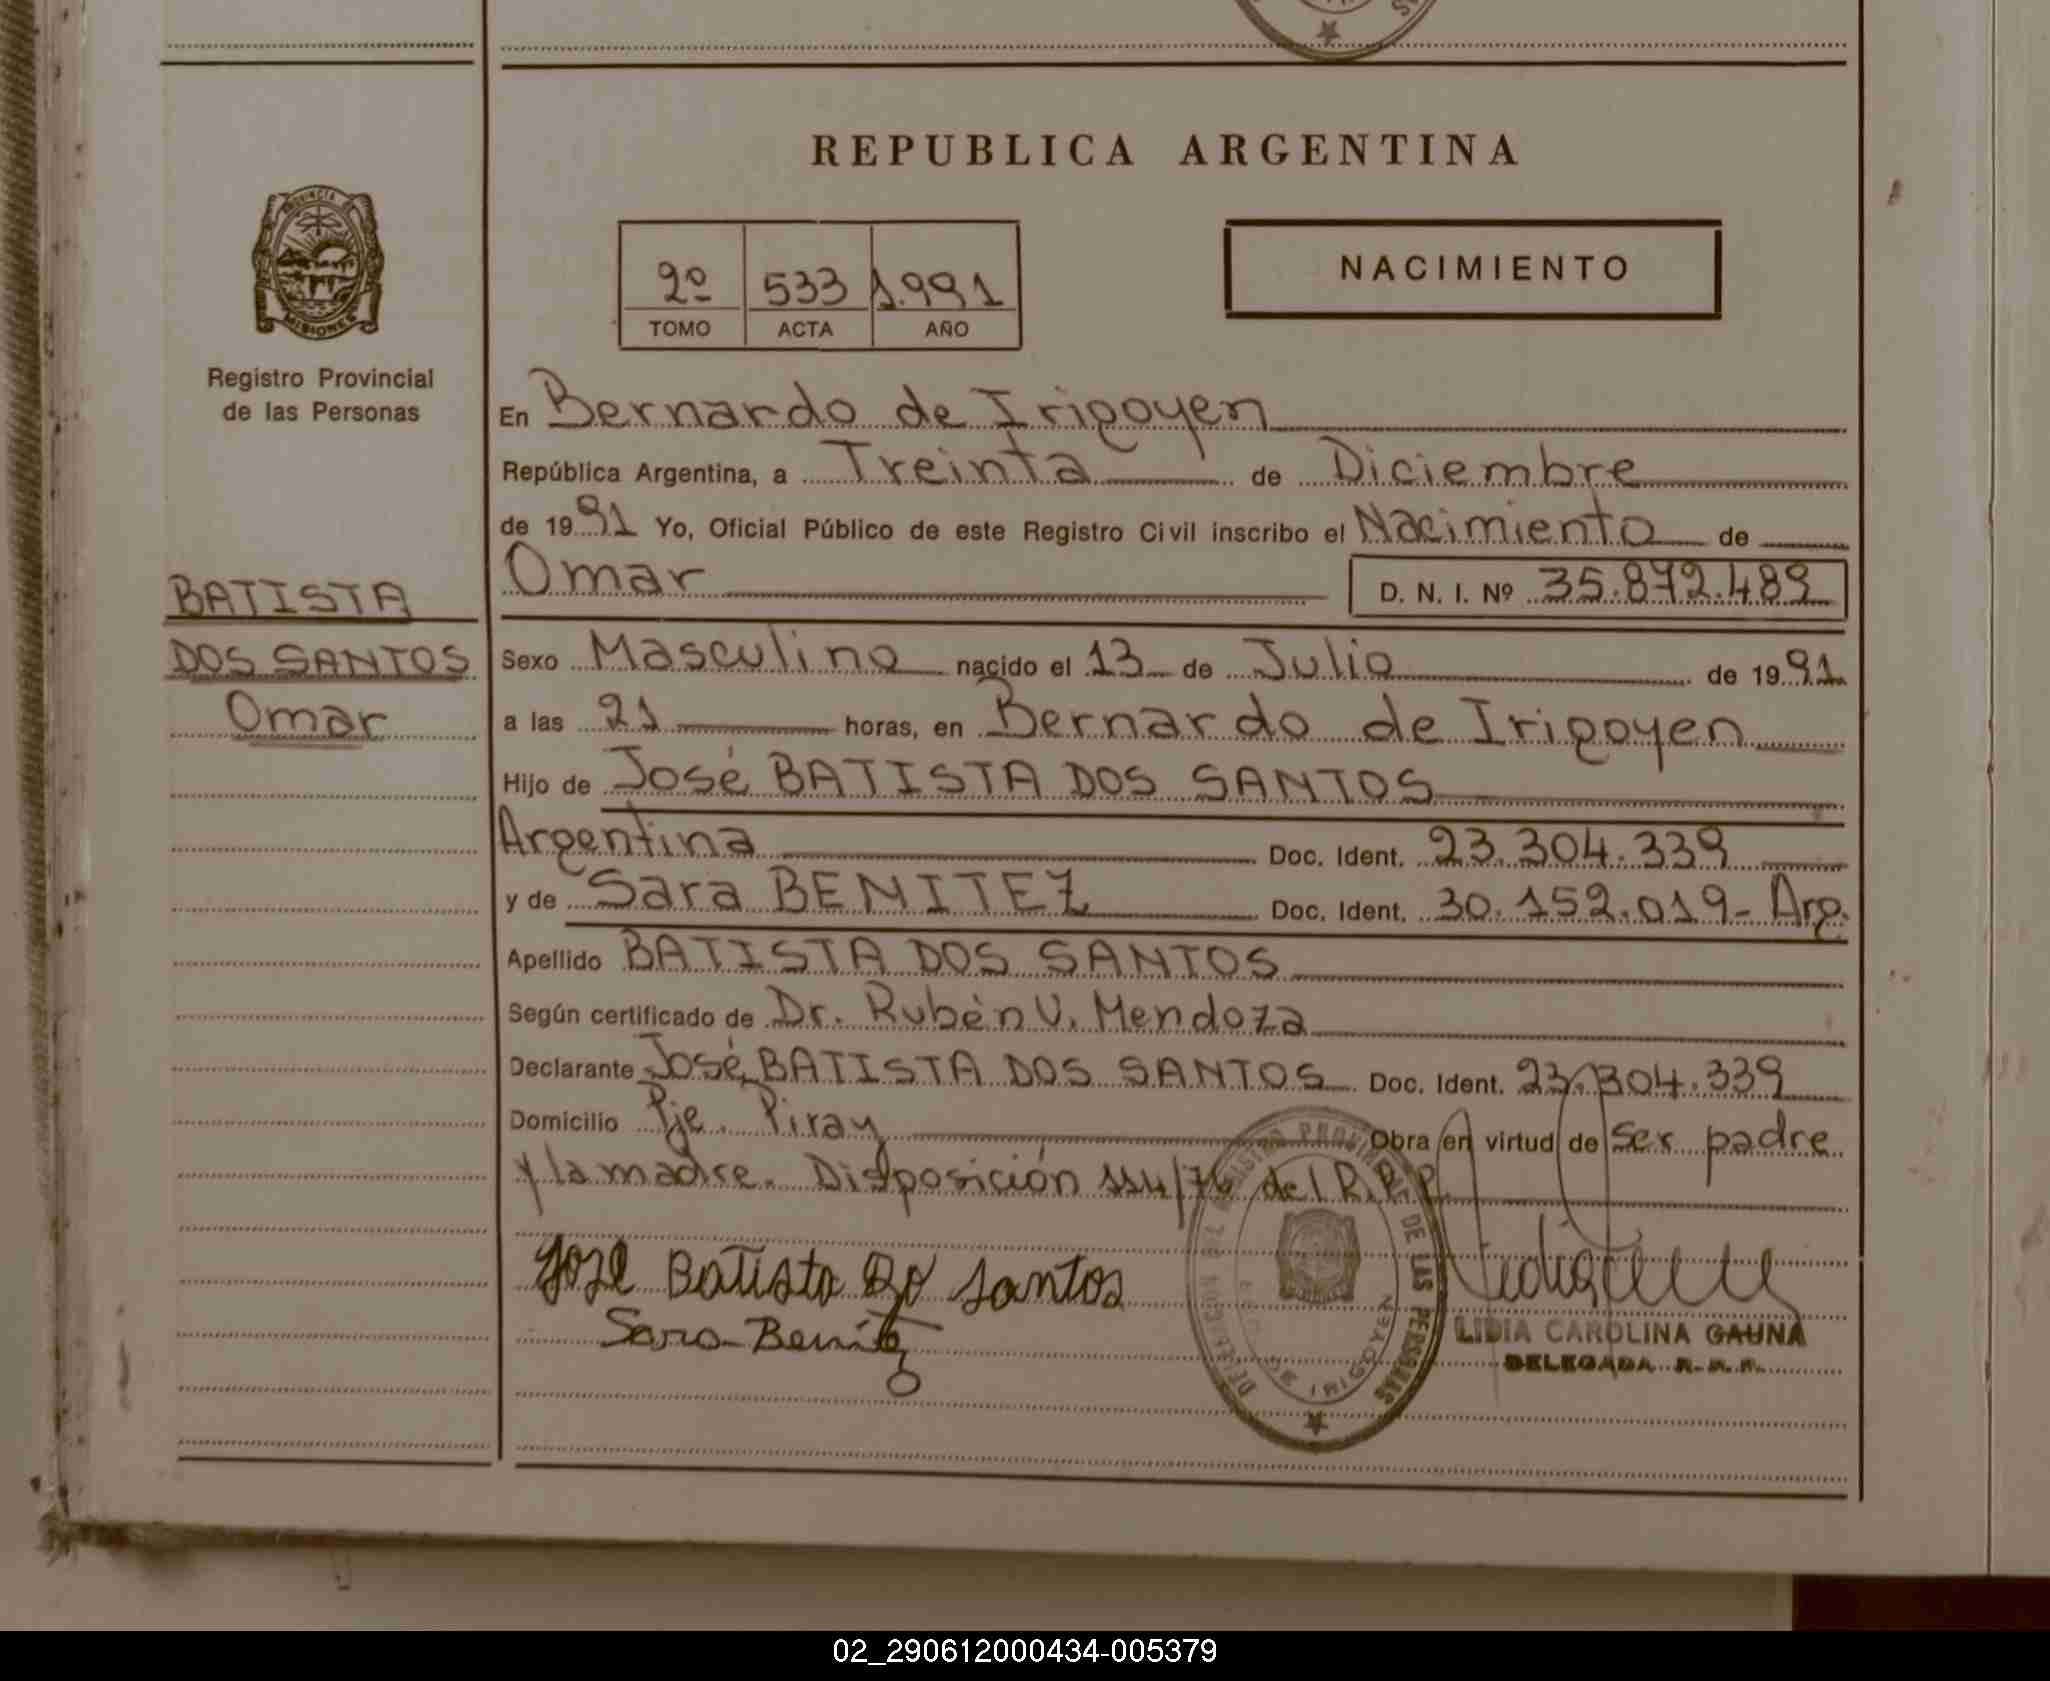 REPUBLICA ARGENTINA
PROVINCIA DE
MISIONES
Registro Provincial
de las Personas
2º 533 1.991
TOMO ACTA AÑO
NACIMIENTO
En Bernardo de Irigoyen
República Argentina, a Treinta de Diciembre
de 1991 Yo, Oficial Público de este Registro Civil inscribo el Nacimiento de
Omar D. N. I. Nº 35.872.489
BATISTA
DOS SANTOS
Omar
Sexo Masculino nacido el 13 de Julio de 1991
a las 21 horas, en Bernardo de Irigoyen
Hijo de José BATISTA DOS SANTOS
Argentina Doc. Ident. 23.304.339
y de Sara BENITEZ Doc. Ident. 30.152.019- Arg.
Apellido BATISTA DOS SANTOS
Según certificado de Dr. Rubén V. Mendoza
Declarante José BATISTA DOS SANTOS Doc. Ident. 23.304.339
Domicilio Pje. Piray Obra en virtud de ser padre
y la madre. Disposición 114/76 del R.P.P.
José Batista Do Santos
Sara Benitez
DE LAS PERSONAS
DE IRIGOYEN
LIDIA CAROLINA GAUNA
DELEGADA R. P. P.
02_290612000434-005379